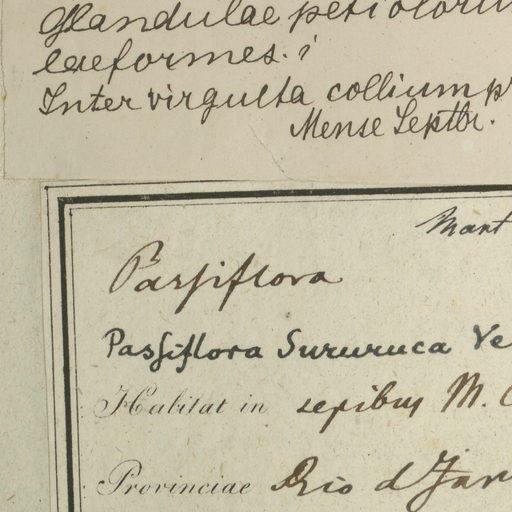 Glandulae petiolorum
Inter virgulta collium pr
Mense Septbr.
Mart
Passiflora
Passiflora Sururuca Ve
Habitat in sepibus M. C
Provinciae Rio d Jan